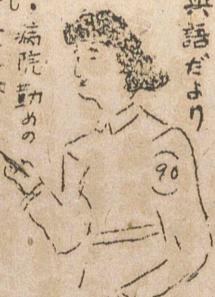 英語だより
病院勤めの
90